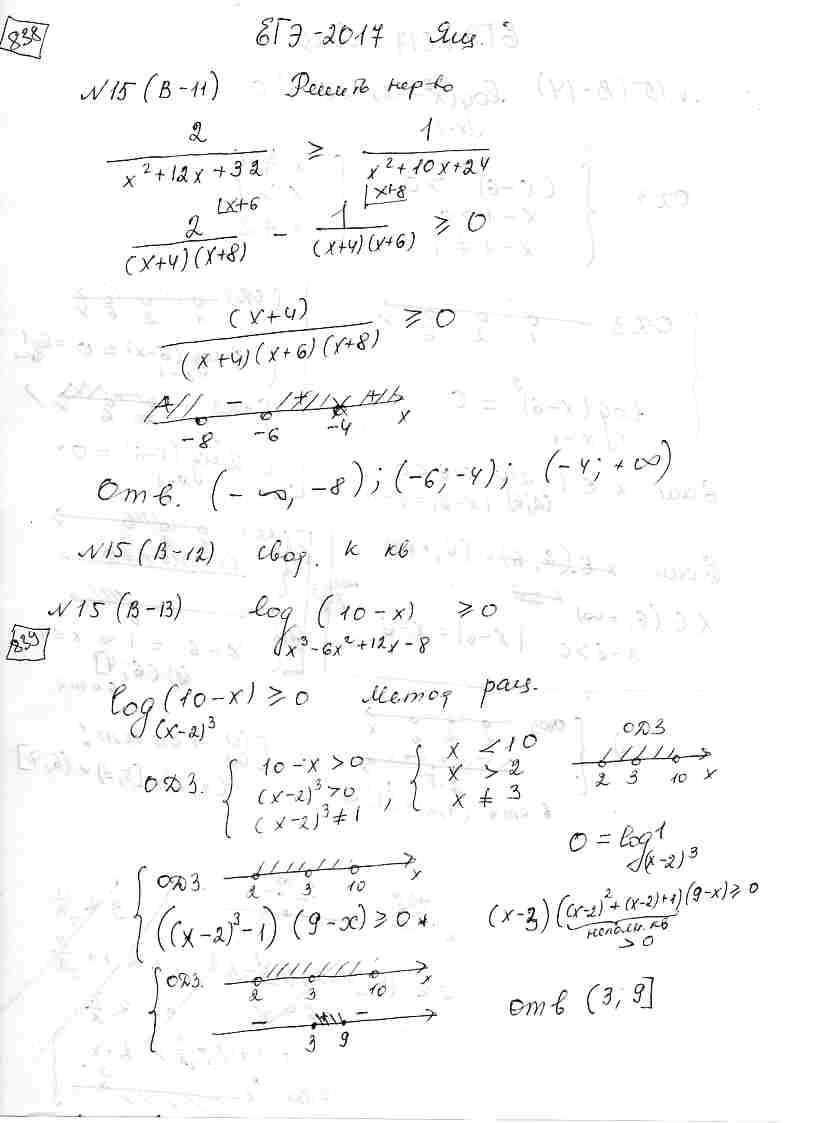 838
ЕГЭ-2017 Ящ.
N15 (В-11) Решить нер-во
2/(x²+12x+32) ≥ 1/(x²+10x+24)
2⌊x+6/((x+4)(x+8)) - 1⌊x+8/((x+4)(x+6)) ≥ 0
(x+4)/((x+4)(x+6)(x+8)) ≥ 0
+ - + +
-8 -6 -4 x
Отв. (-∞, -8); (-6; -4); (-4; +∞)
N15 (В-12) свод. к кв
N15 (В-13) log (10-x) ≥ 0
839
x³-6x²+12x-8
log (10-x) ≥ 0 Метод рац.
(x-2)³
ОДЗ. { 10-x>0 , { x < 10 ОДЗ
(x-2)³>0 x > 2
(x-2)³≠1 x ≠ 3
2 3 10 x
0 = log 1
(x-2)³
{ ОДЗ. 2 3 10 x
((x-2)³-1)(9-x) ≥ 0 (x-3)((x-2)²+(x-2)+1)(9-x) ≥ 0
неполн. кв
> 0
{ ОДЗ. 2 3 10 x
- + -
3 9
отв (3; 9]